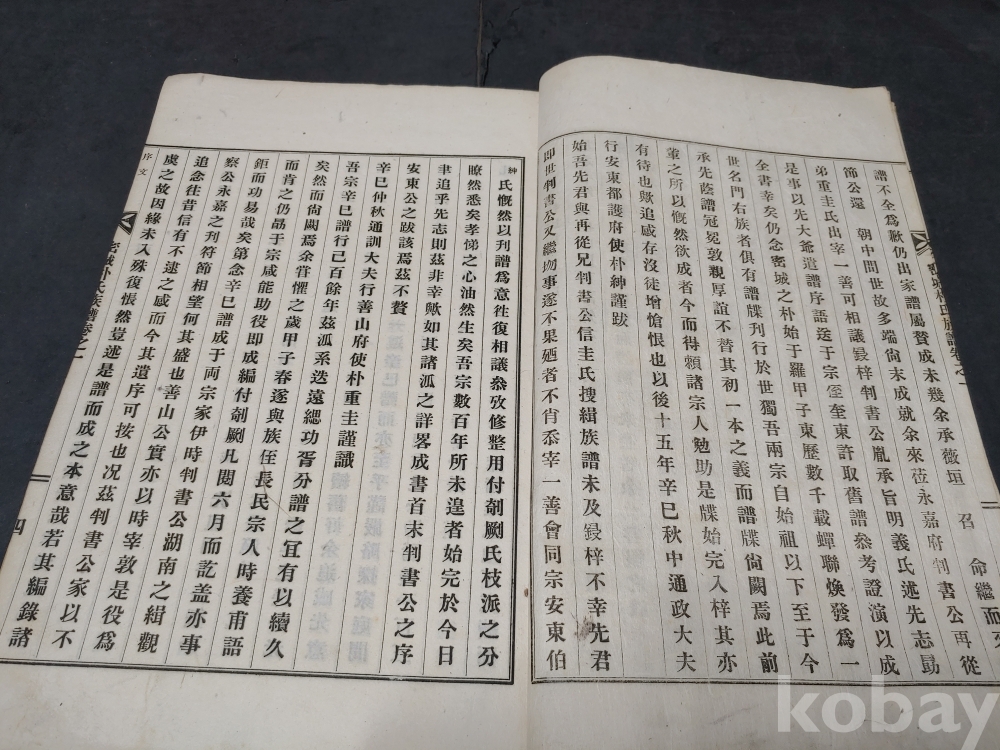 命繼而
譜不全爲歉仍出家譜屬贊成未幾余承薇垣 召
節公還 朝中間世故多端尙未成就余來莅永嘉府判書公再從
弟重圭氏出宰一善可相議鋟梓判書公胤承旨明義氏述先志勖
是事以先大爺遺譜序語送于宗侄奎東許取舊譜叅考證演以成
全書幸矣仍念密城之朴始于羅甲子東歷數千載蟬聯煥發爲一
世名門右族者俱有譜牒刋行於世獨吾兩宗自始祖以下至于今
承先蔭譜冠冕敦親厚誼不替其初一本之義而譜牒尙闕焉此前
輩之所以慨然欲成者今而得賴諸宗人勉助是牒始完入梓其亦
有待也歟追感存沒徒增愴恨也以後十五年辛巳秋中通政大夫
行安東都護府使朴紳謹跋
始吾先君與再從兄判書公信圭氏搜緝族譜未及鋟梓不幸先君
卽世判書公又繼㘽事遂不果廼者不肖忝宰一善會同宗安東伯
紳氏慨然以刋譜爲意徃復相議叅攷修整用付剞劂氏枝派之分
瞭然悉矣孝悌之心油然生矣吾宗數百年所未遑者始完於今日
聿追乎先志則茲非幸歟如其諸派之詳畧成書首末判書公之序
安東公之跋該焉茲不贅
辛巳仲秋通訓大夫行善山府使朴重圭謹識
吾宗辛巳譜行已百餘年茲派系迭遠緦功胥分譜之冝有以續久
矣然而尙闕焉余甞懼之歲甲子春遂與族侄長民宗人時養甫語
而肯之仍詢于宗咸能助役卽成編付剞劂凡閱六月而訖盖亦事
鉅而功易哉矣第念辛巳譜成于両宗家伊時判書公湖南之緝觀
察公永嘉之刋符節相望何其盛也善山公實亦以時宰敦是役爲
追念徃昔信有不逮之感而今其遺序可按也况茲判書公家以不
虞之故因緣未入殊復悵然豈述是譜而成之本意哉若其編錄諸
序文
密城朴氏族譜卷之一
四
密城朴氏族譜卷之一
kobay